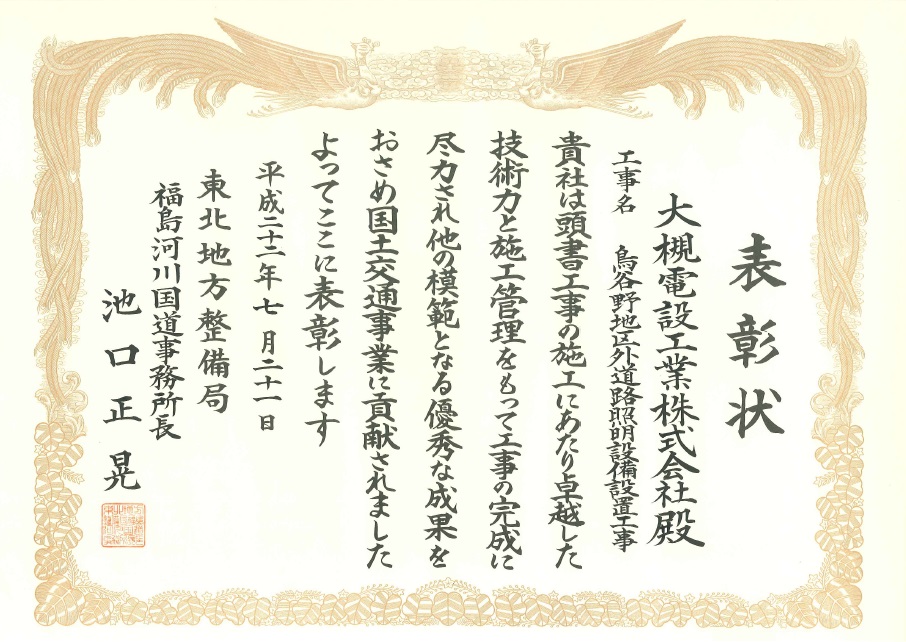 表彰状
大槻電設工業株式会社殿
工事名 鳥谷野地区外道路照明設備設置工事
貴社は頭書工事の施工にあたり卓越した
技術力と施工管理をもって工事の完成に
尽力され他の模範となる優秀な成果を
おさめ国土交通事業に貢献されました
よってここに表彰します
平成二十二年七月二十一日
東北地方整備局
福島河川国道事務所長
池口正晃